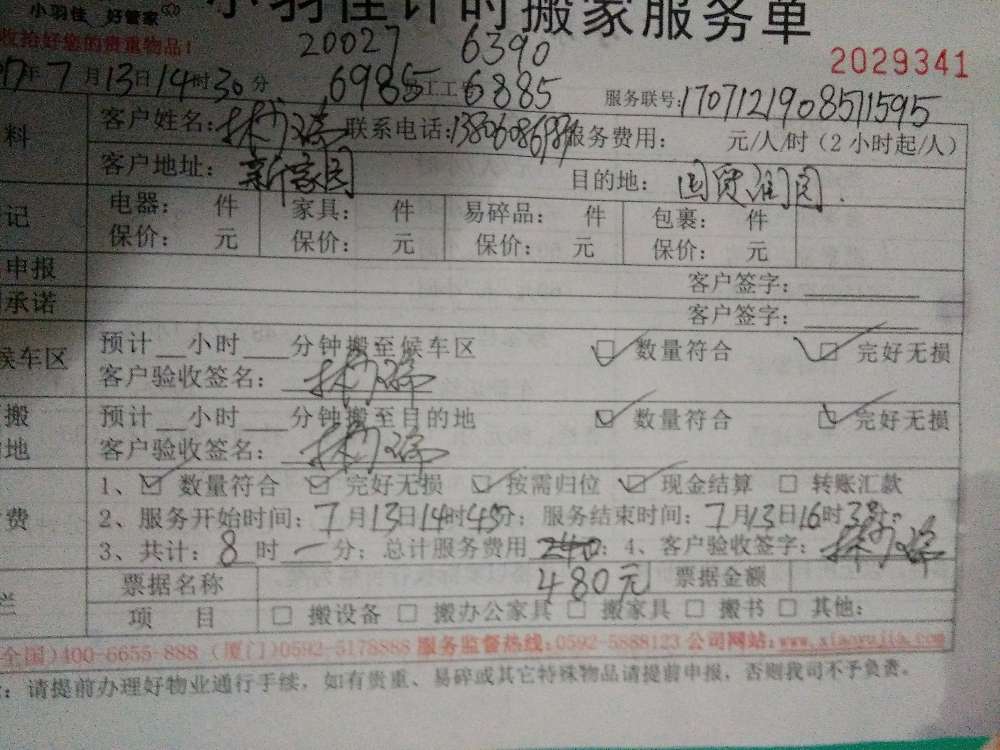 小羽佳 好管家
小羽佳计时搬家服务单
收拾好您的贵重物品!
20027 6390
2029341
年7月13日14时30分
6985 工 6885
服务联号:1707121908571595
料 客户姓名: 联系电话: 服务费用: 元/人/时（2小时起/人）
客户地址: 新家园 目的地: 国贸润园.
记 电器: 件 家具: 件 易碎品: 件 包裹: 件
保价: 元 保价: 元 保价: 元 保价: 元
申报 客户签字:
承诺 客户签字:
候车区 预计__小时___分钟搬至候车区 ☑ 数量符合 ☑ 完好无损
客户验收签名:
搬 预计__小时___分钟搬至目的地 ☑ 数量符合 ☑ 完好无损
地 客户验收签名:
1、☑ 数量符合 ☑ 完好无损 ☑ 按需归位 ☑ 现金结算 □ 转账汇款
费 2、服务开始时间: 7月13日14时45分; 服务结束时间: 7月13日16时3分;
3、共计: 8时一分; 总计服务费用 240; 4、客户验收签字:
票据名称 480元 票据金额
栏 项 目 □ 搬设备 □ 搬办公家具 □ 搬家具 □ 搬书 □ 其他:
全国)400-6655-888 (厦门)0592-5178888 服务监督热线:0592-5888123 公司网站:www.xiaoyujia.com
: 请提前办理好物业通行手续，如有贵重、易碎或其它特殊物品请提前申报，否则我司不予负责。